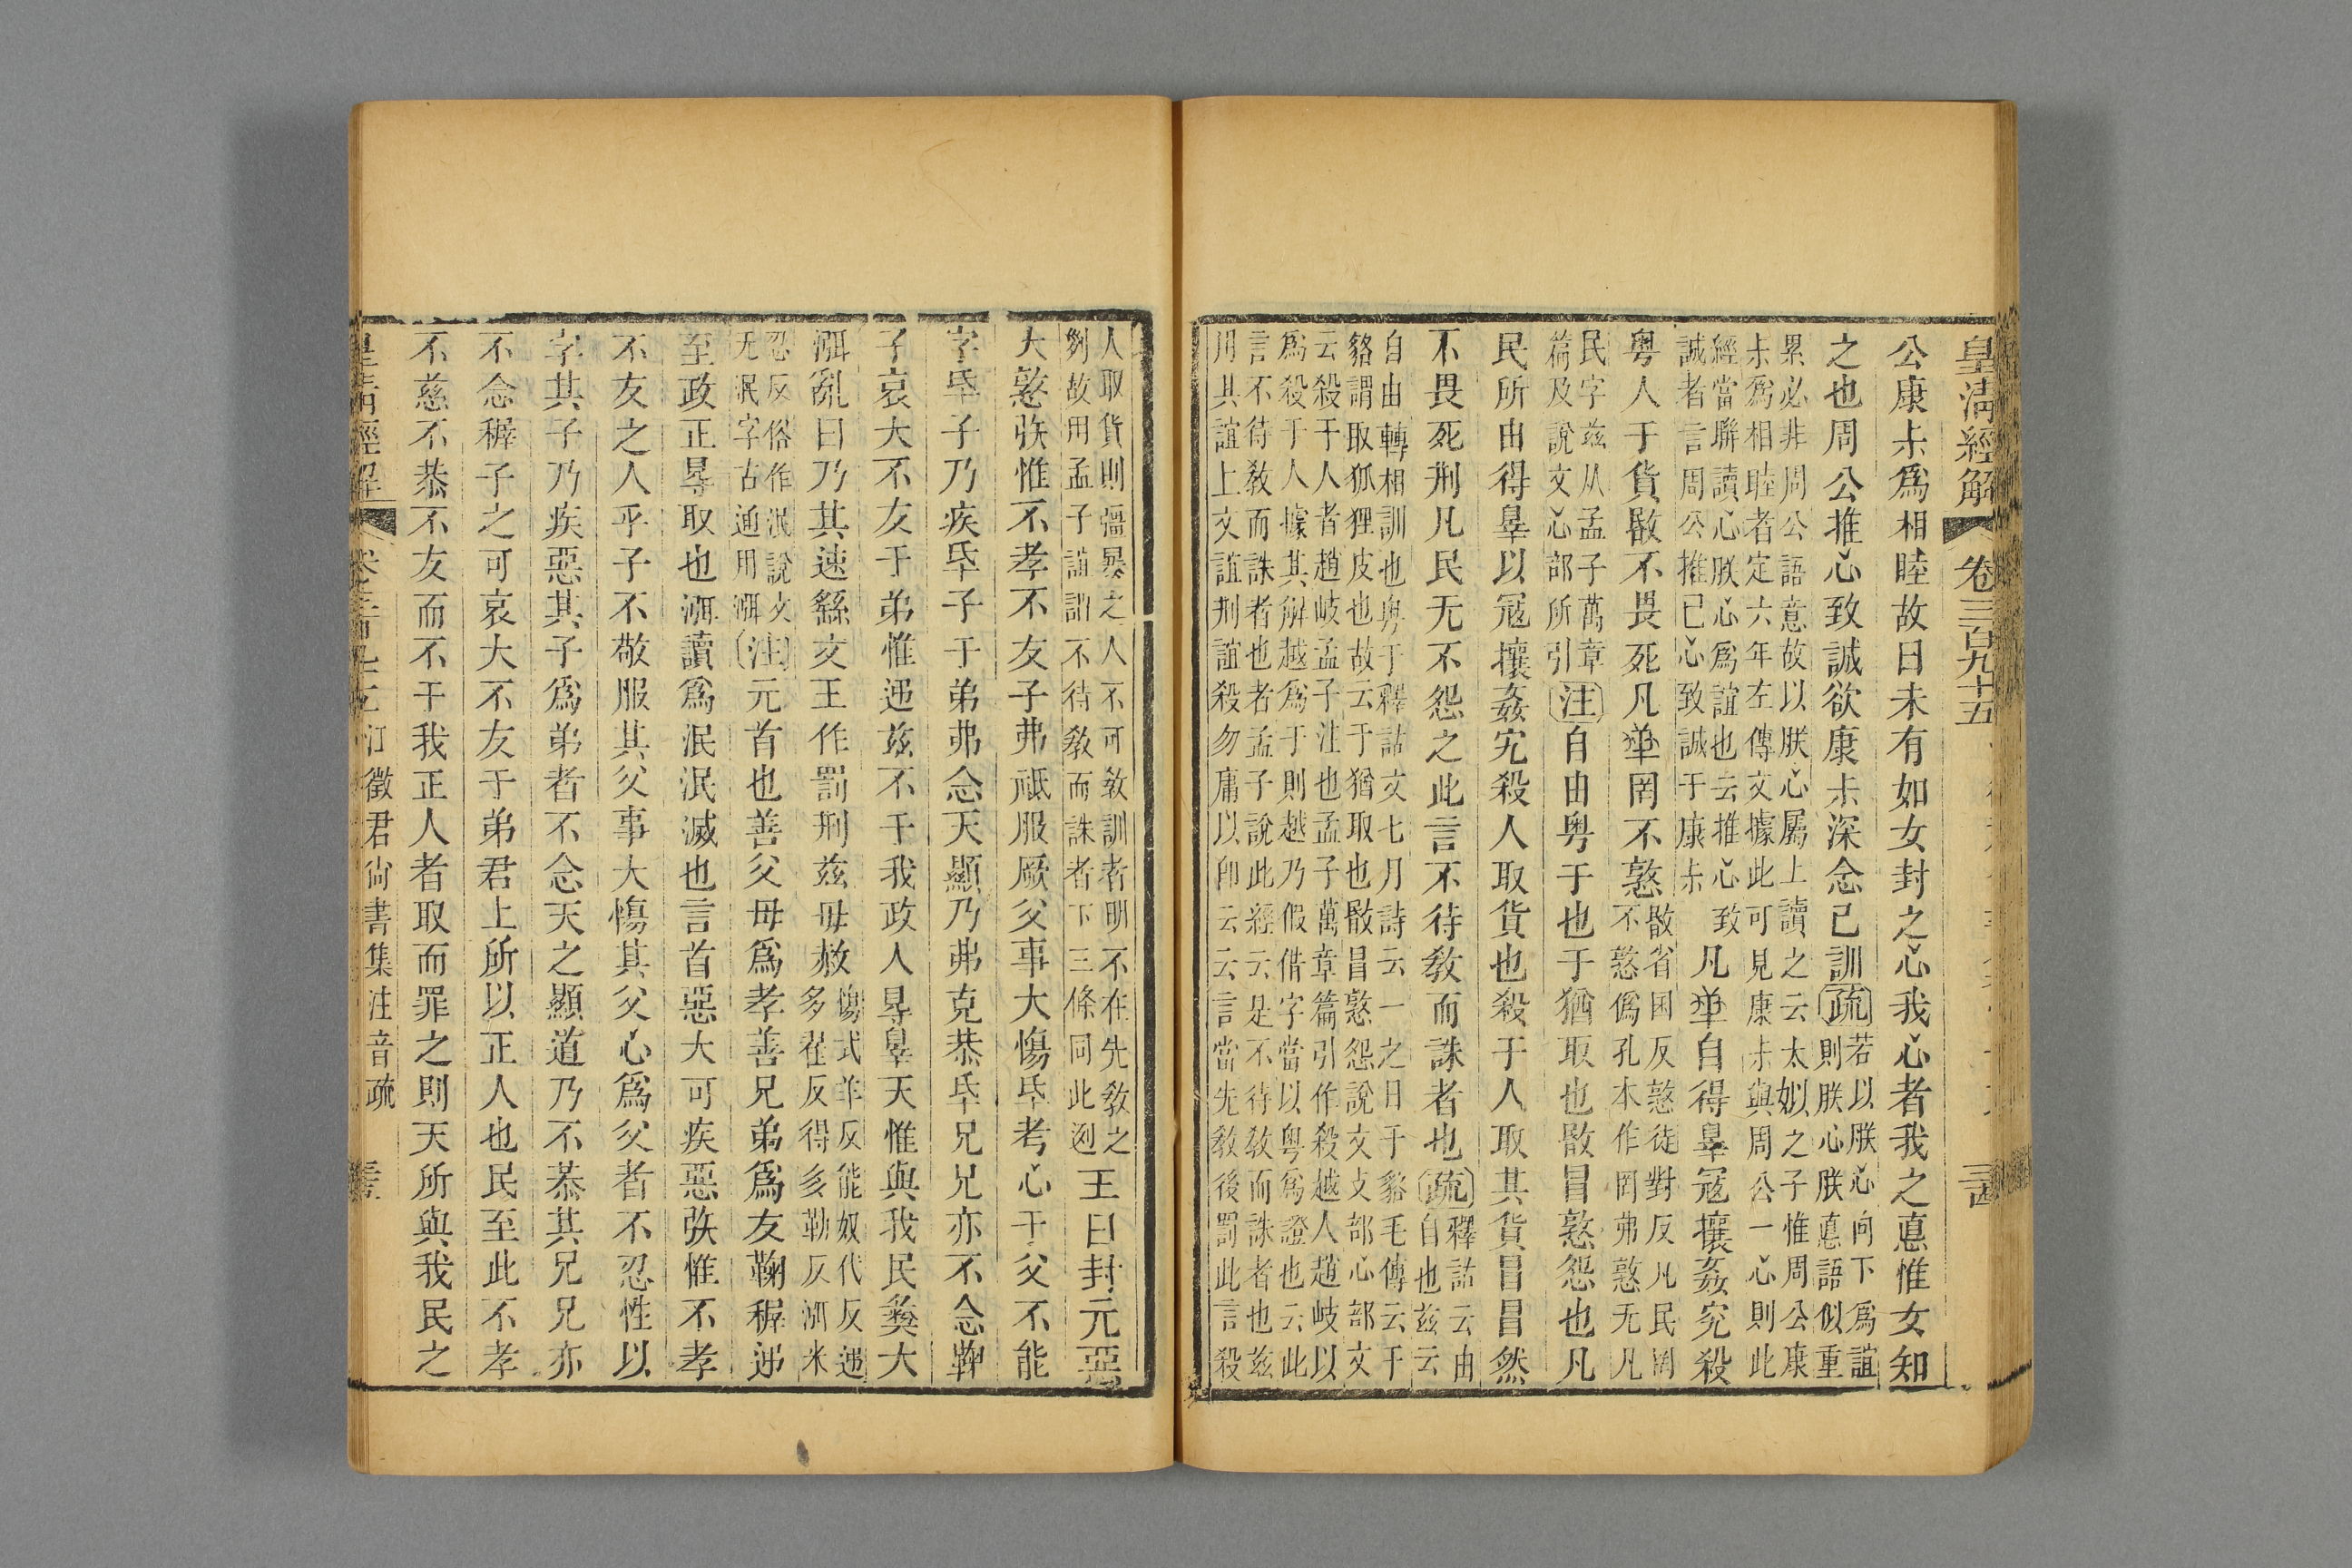 皇淸經解 卷三百九十五
公康尗爲相睦故曰未有如女封之心我心者我之悳惟女知
之也周公推心致誠欲康尗深念己訓疏若以朕心向下爲誼
則朕心朕悳語似重
累必非周公語意故以朕心屬上讀之云太姒之子惟周公康
尗爲相睦者定六年左傳文據此可見康尗與周公一心則此
經當聯讀心朕心爲誼也云推心致
誠者言周公推己心致誠于康尗凡民自得辠寇攘姦宄殺
粤人于貨敯不畏死凡民罔不憝敯省囯反憝徒對反凡民罔
不憝僞孔本作罔弗憝无凡
民字兹从孟子萬章
篇及說文心部所引注自由粤于也于猶取也敯冒憝怨也凡
民所由得辠以寇攘姦宄殺人取貨也殺于人取其貨冒冒然
不畏死刑凡民无不怨之此言不待敎而誅者也疏釋詁云由
自也兹云
自由轉相訓也粤于釋詁文七月詩云一之日于貉毛傳云于
貉謂取狐狸皮也故云于猶取也敯冒憝怨說文攴部心部文
云殺于人者趙岐孟子注也孟子萬章篇引作殺越人趙岐以
爲殺于人據其解越爲于則越乃假借字當以粤爲證也云此
言不待敎而誅者也者孟子說此經云是不待敎而誅者也兹
用其誼上文誼刑誼殺勿庸以卽云云言當先敎後罰此言殺
人取貨則彊暴之人不可敎訓者明不在先敎之
𠛱故用孟子誼謂不待敎而誅者下三條同此𠛱王曰封元惡
大憝矤惟不孝不友子弗祗服厥父事大慯氒考心于父不能
字氒子乃疾氒子于弟弗念天顯乃弗克恭氒兄兄亦不念鞠
子哀大不友于弟惟迊兹不于我政人㝵辠天惟與我民彝大
湎亂曰乃其速繇文王作罰刑兹毋赦慯式羊反能奴代反迊
多翟反得多勒反湎米
忍反俗作泯說文
无泯字古通用湎注元首也善父母爲孝善兄弟爲友鞠稺迊
至政正㝵取也湎讀爲泯泯滅也言首惡大可疾惡矤惟不孝
不友之人乎子不敬服其父事大慯其父心爲父者不忍性以
字其子乃疾惡其子爲弟者不念天之顯道乃不恭其兄兄亦
不念稺子之可哀大不友于弟君上所以正人也民至此不孝
不慈不恭不友而不于我正人者取而罪之則天所與我民之
皇淸經解 江徵君尙書集注音疏